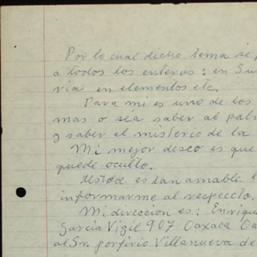 Por lo cual dicho tema se
a todos los enteros: en Su
via en elementos etc.
Para mi es uno de los
mas o sea saber al
y saber el misterio de la
Mi mejor deseo es que
quede oculto.
Ustéd es tan amable
informarme al respecto.
Mi direccion es: Enriq
García Vigil 907 Oaxaca Oa
al Sr. porfirio Villanueva de